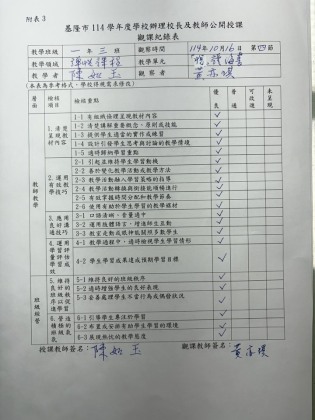 附表3
基隆市114學年度學校辦理校長及教師公開授課
觀課紀錄表
教學班級 一年三班 觀察時間 114年10月16日第四節
教學領域 教學單元
教學者 陳如玉 觀察者
(本表為參考格式,學校得視需求修改)
層面 檢核項目 檢核重點 優良 普通 可改進 未呈現
教師教學
1.清楚呈現教材內容
1-1有組織條理呈現教材內容 ✓
1-2清楚講解重要概念、原則或技能 ✓
1-3提供學生適當的實作或練習 ✓
1-4設計引發學生思考與討論的教學情境 ✓
1-5適時歸納學習重點 ✓
2.運用有效教學技巧
2-1引起並維持學生學習動機 ✓
2-2善於變化教學活動或教學方法 ✓
2-3教學活動融入學習策略的指導 ✓
2-4教學活動轉換與銜接能順暢進行 ✓
2-5有效掌握時間分配和教學節奏 ✓
2-6使用有助於學生學習的教學媒材 ✓
3.應用良好溝通技巧
3-1口語清晰、音量適中 ✓
3-2運用肢體語言,增進師生互動 ✓
3-3教室走動或眼神能關照多數學生 ✓
4.運用學習評量評估學習成效
4-1教學過程中,適時檢視學生學習情形 ✓
4-2學生學習成果達成預期學習目標 ✓
班級經營
5.維持良好的班級秩序以促進學習
5-1維持良好的班級秩序 ✓
5-2適時增強學生的良好表現 ✓
5-3妥善處理學生不當行為或偶發狀況 ✓
6.營造積極的班級氣氛
6-1引導學生專注於學習 ✓
6-2布置或安排有助學生學習的環境 ✓
6-3展現熱忱的教學態度 ✓
授課教師簽名:陳如玉 觀課教師簽名: